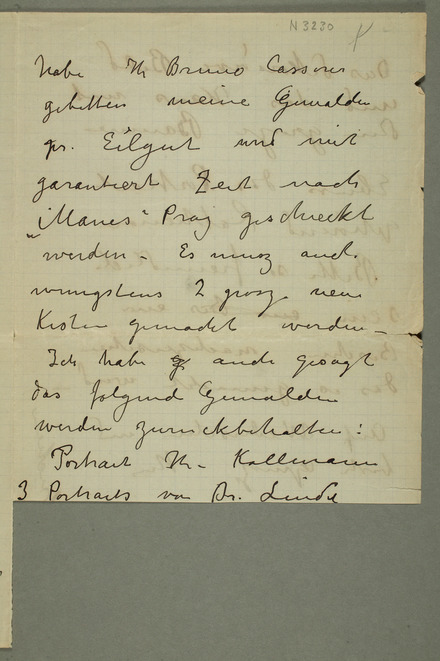 N 3230
habe Hr Bruno Cassirer
gebitten meine Gemalden
pr. Eilgut und mit
garantiert Zeit nach
"Manes" Prag geschickt
werden – Es musz auch
wenigstens 2 grosze neue
Kisten gemacht werden –
Ich habe auch gesagt
das folgend Gemalden
werden zurückbehalten:
Portrait Hr – Kollmann
3 Portraits von Dr. Linde